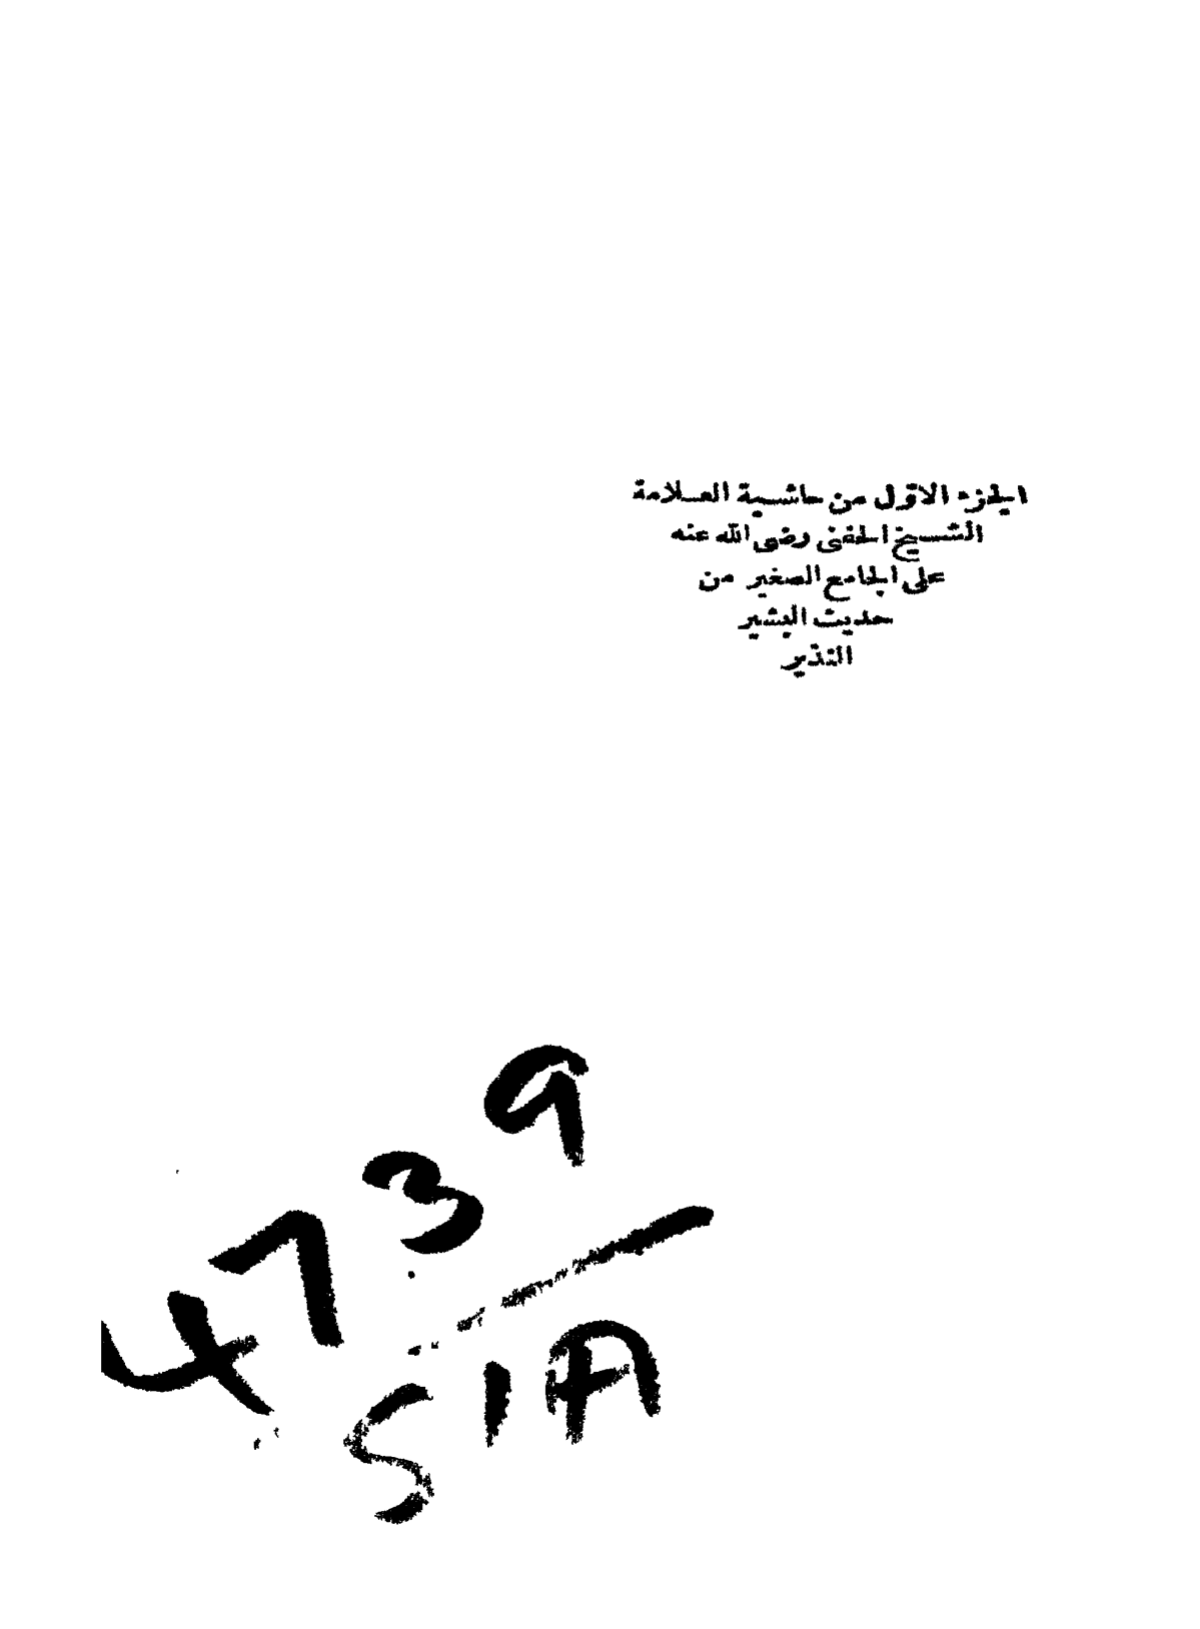 الجزء الاول من حاشية العلامة
الشيخ الحفنى رضى الله عنه
على الجامع الصغير من
حديث البشير
النذير
4739